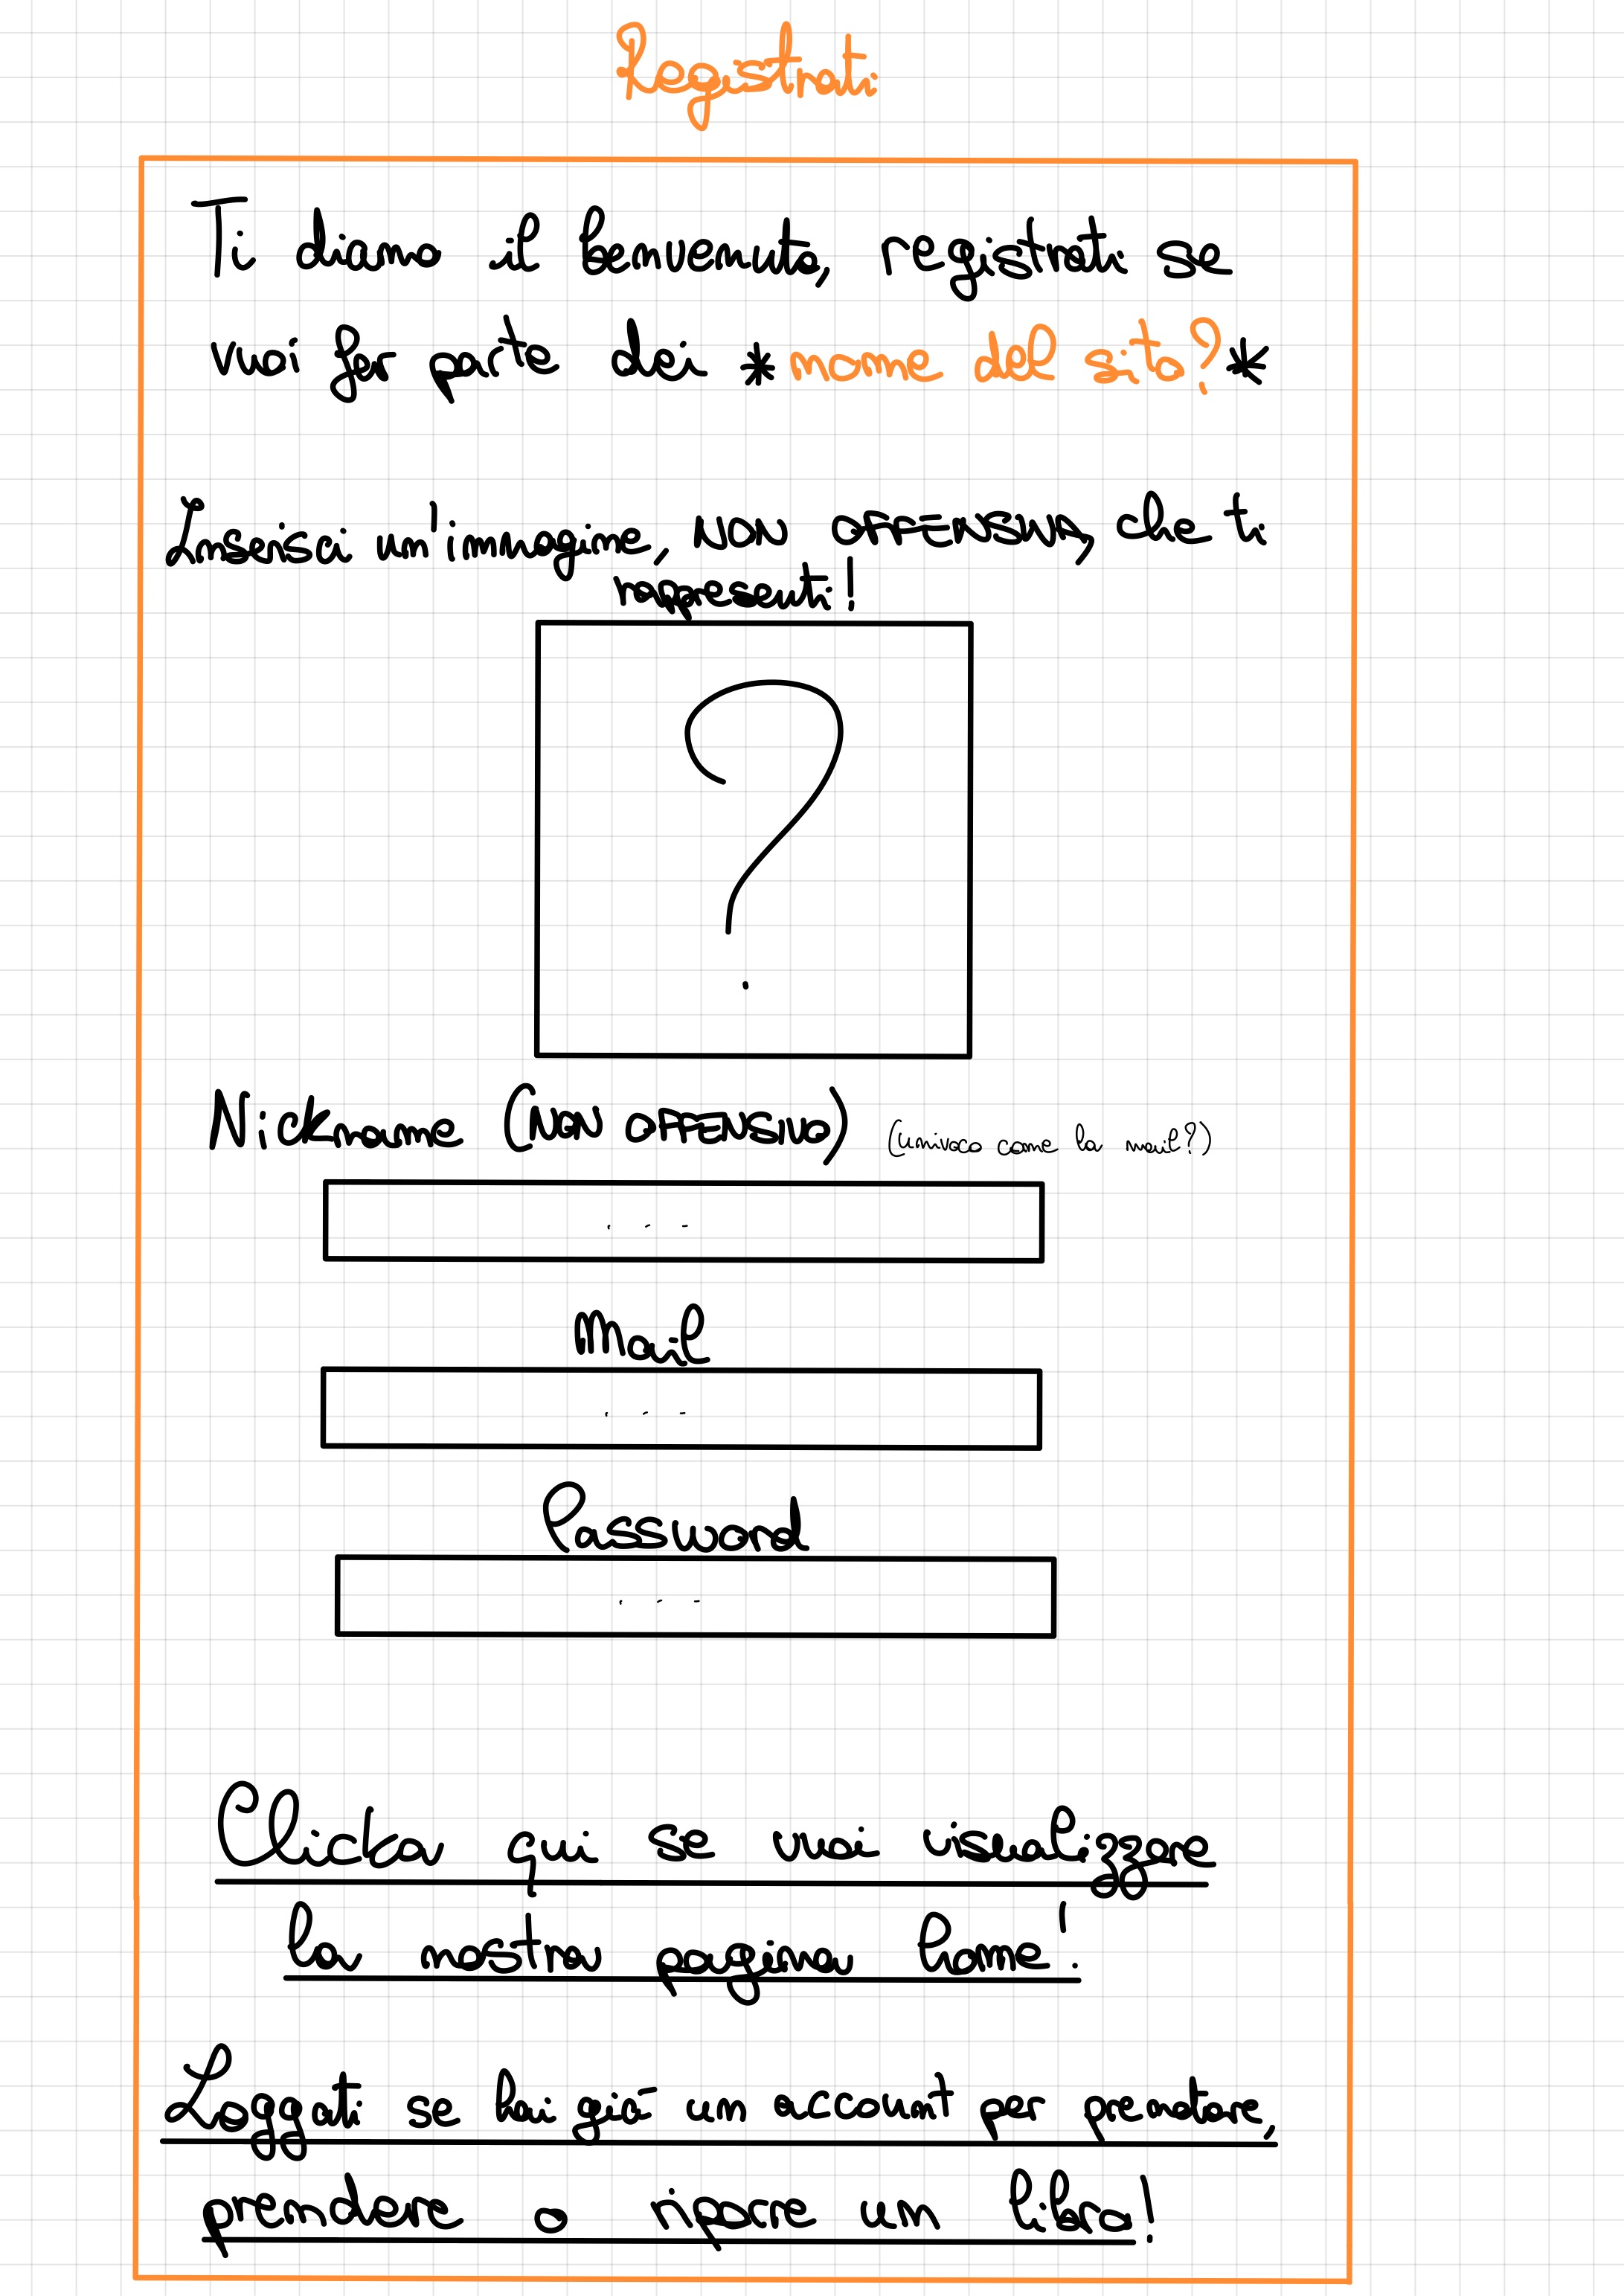 Registrati
Ti diamo il benvenuto, registrati se
vuoi far parte dei *nome del sito?*
Inserisci un'immagine, NON OFFENSIVA, che ti
rappresenti!
?
Nickname (NON OFFENSIVO) (univoco come la mail?)
. . .
Mail
. . .
Password
. . .
Clicka qui se vuoi visualizzare
la nostra pagina home!
Loggati se hai già un account per prenotare,
prendere o riporre un libro!